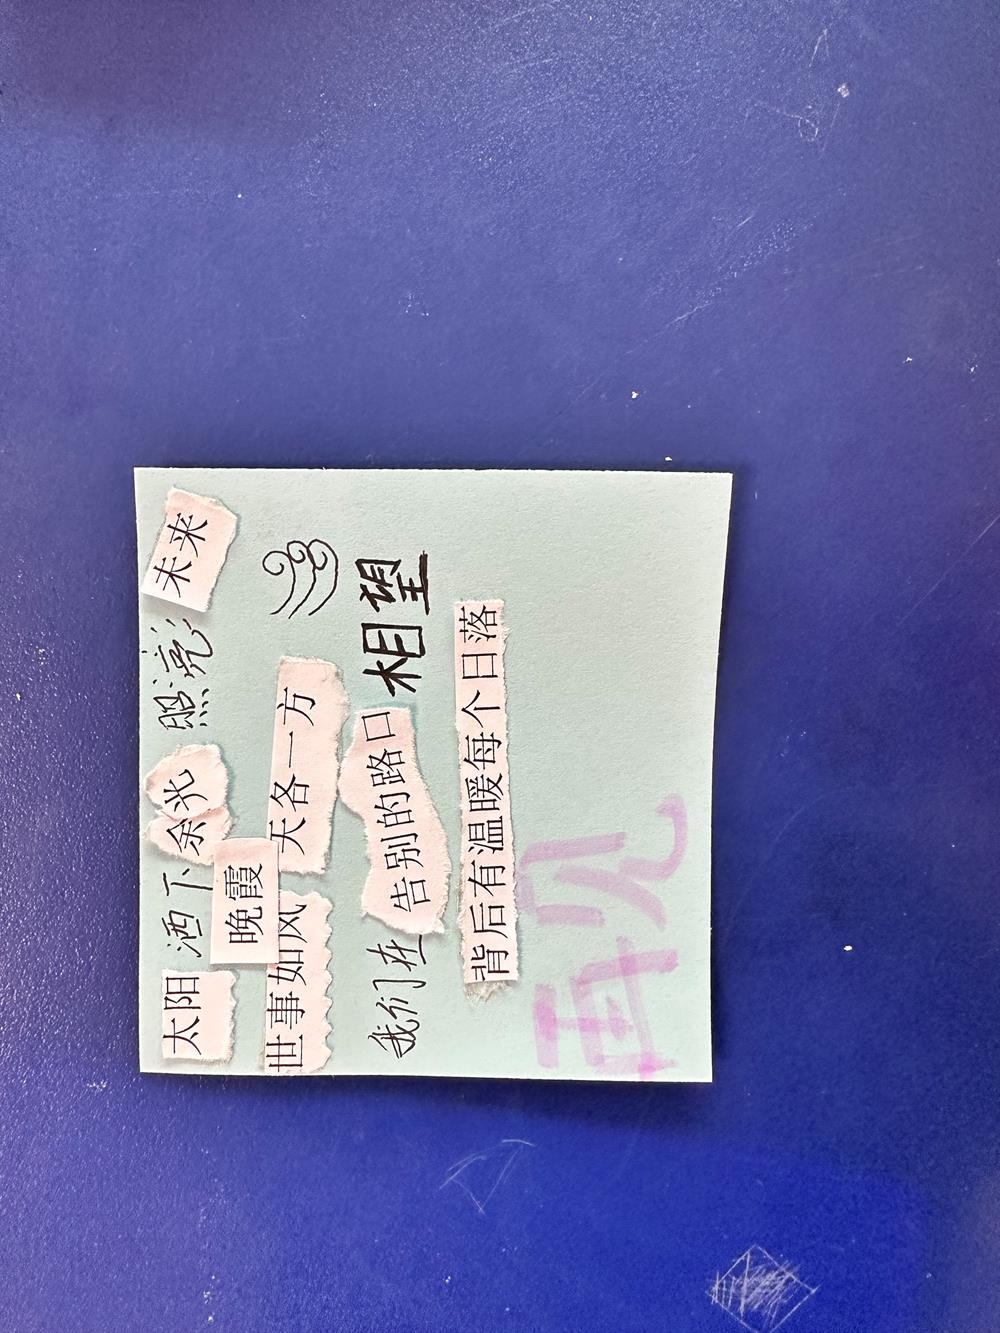 太阳洒下余光照亮未来
晚霞
世事如风天各一方
我们在告别的路口相望
背后有温暖每个日落
再见